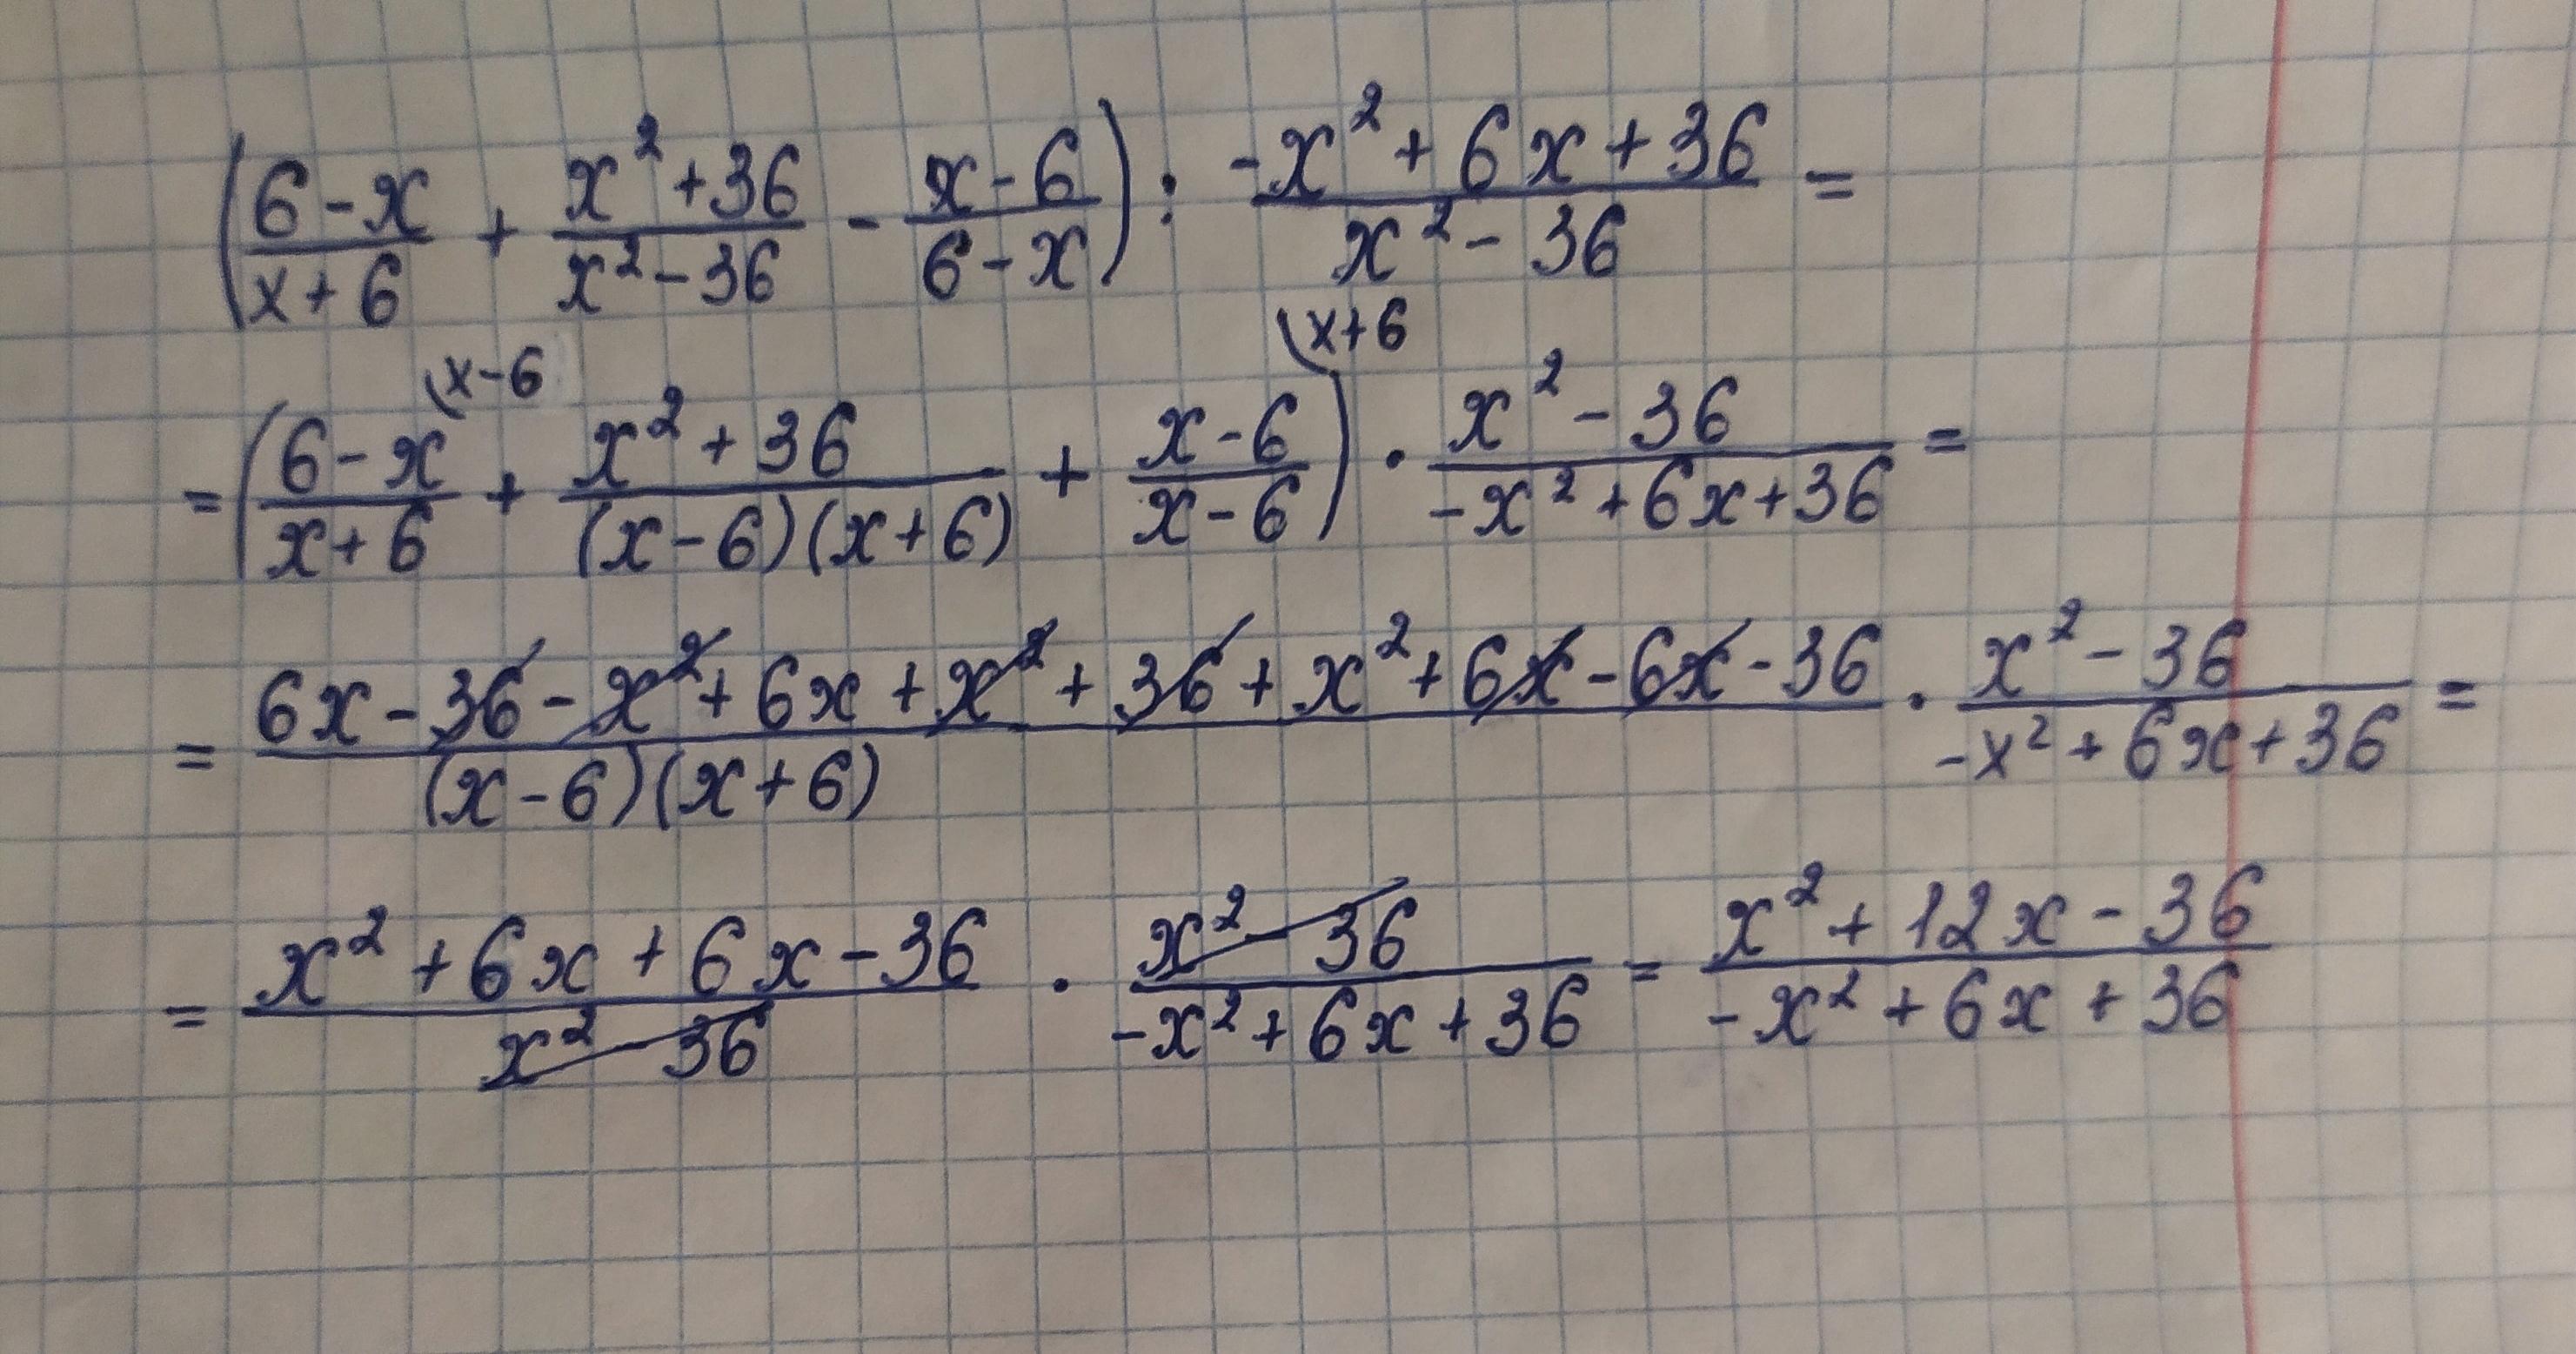 (6-x/x+6 + x²+36/x²-36 - x-6/6-x) : -x²+6x+36/x²-36 =
= (6-x/x+6 (x-6 + x²+36/(x-6)(x+6) + x-6/x-6) (x+6 · x²-36/-x²+6x+36 =
= 6x-36-x²+6x+x²+36+x²+6x-6x-36/(x-6)(x+6) · x²-36/-x²+6x+36 =
= x²+6x+6x-36/x²-36 · x²-36/-x²+6x+36 = x²+12x-36/-x²+6x+36